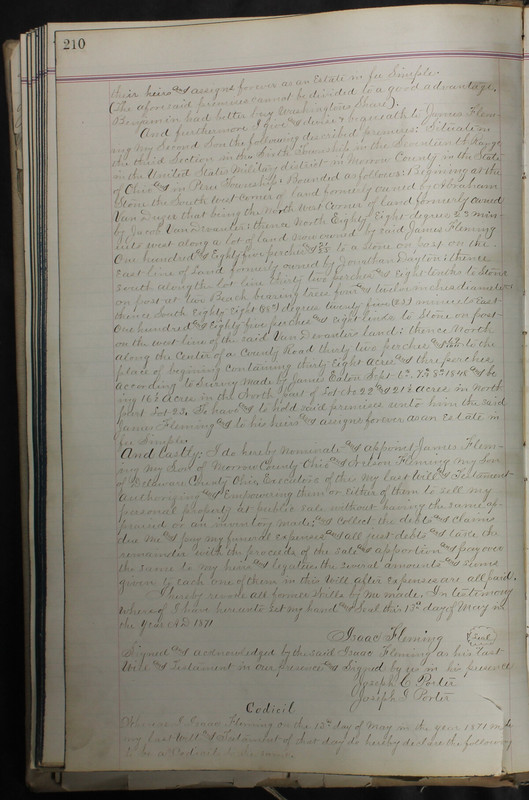 210
their heirs and assigns forever as an Estate in fee Simple.
(The aforesaid premises cannot be divided to a good advantage.
Benjamin had better buy Washingtons Share).
And furthermore I give and devise & bequeath to James Flem-
ing My Second Son the following described premises: Situate in
the third Section in the Sixth Township in the Seventeenth Range
in the United States Military district in Morrow County in the State
of Ohio and in Peru Township. Bounded as follows: Begining at the
Stone the South West Corner of land formerly owned by Abraham
Van Duzer that being the North West Corner of land formerly owned
by Jacob Van Devanter: thence North Eighty Eight degrees 25 min-
utes west along a lot of land now owned by said James Fleming
One hundred and Eighty five perches and 8/100 to a stone or post on the
East line of Land formerly owned by Jonathan Dayton: thence
South along the lot line thirty two perches and Eight links to Stone
or post at two Beach bearing trees four and twelve inches diameter
thence South Eighty Eight (88°) degrees twenty five (25') minutes East
One hundred and Eighty five perches and Eight links to Stone or post
on the west line of the said Van Devanters land: thence North
along the Center of a County Road thirty two perches and to the
place of begining Containing thirty Eight acres and three perches
according to Survey Made by James Eaton Sept. 6th 7th & 8th 1848 and be
ing 16½ acres in the North part of Lot No 22 and 21½ acres in North
part Lot 23. To have and to hold said premises unto him the said
James Fleming and to his heirs and assigns forever as an Estate in
fee Simple.
And Lastly; I do hereby Nominate and appoint James Flem-
ing My Son of Morrow County Ohio and Nelson Fleming My Son
of Delaware County Ohio, Executors of this My last Will and Testament
authorizing and Empowering them or either of them to sell my
personal property at public sale without having the same ap-
praised or an inventory made; and collect the debts and claims
due me and pay my funeral expenses and all just debts and take the
remainder with the proceeds of the sale and apportion and pay over
the same to my heirs and legatees the several amounts and sums
given to each one of them in this Will after Expenses are all paid.
I hereby revoke all former Wills by Me made. In testimony
whereof I have hereunto Set my hand and Seal this 13th day of May in
the year A.D. 1871
Isaac Fleming (Seal)
Signed and acknowledged by the said Isaac Fleming as his Last
Will and Testament in our presence and signed by us in his presence
Joseph C Porter
Joseph I Porter
Codicil
Whereas I Isaac Fleming on the 13th day of May in the year 1871 made
my last Will and Testament of that day do hereby declare the following
to be a Codicil to the same.